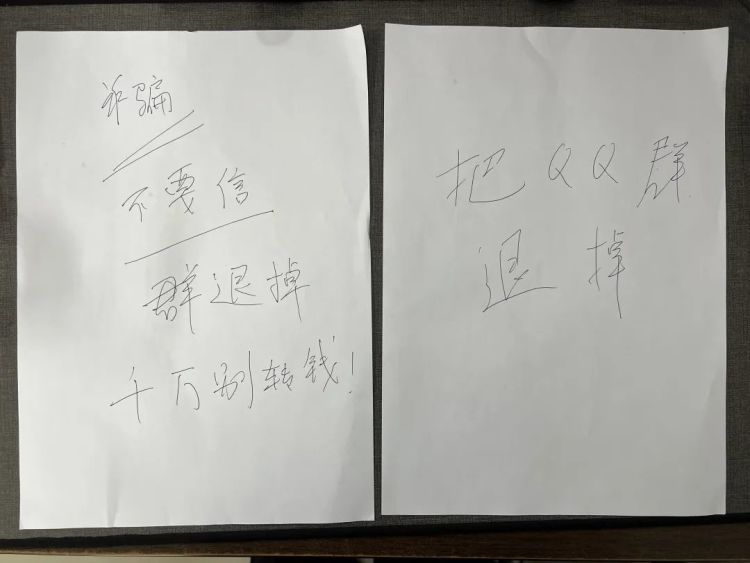 诈骗
不要信
群退掉
千万别转钱!
把QQ群
退掉